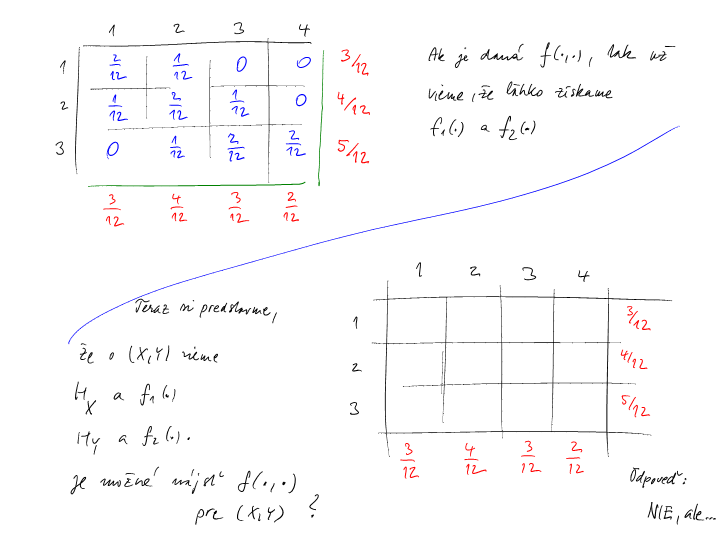 1 2 3 4
1 2/12 1/12 0 0 3/12
2 1/12 2/12 1/12 0 4/12
3 0 1/12 2/12 2/12 5/12
3/12 4/12 3/12 2/12
Ak je daná f(·,·), tak už
vieme, že ľahko získame
f₁(·) a f₂(·)
Teraz si predstavme,
že o (X,Y) vieme
H_X a f₁(·)
H_Y a f₂(·).
Je možné nájsť f(·,·)
pre (X,Y) ?
1 2 3 4
1 3/12
2 4/12
3 5/12
3/12 4/12 3/12 2/12
Odpoveď:
NIE, ale...